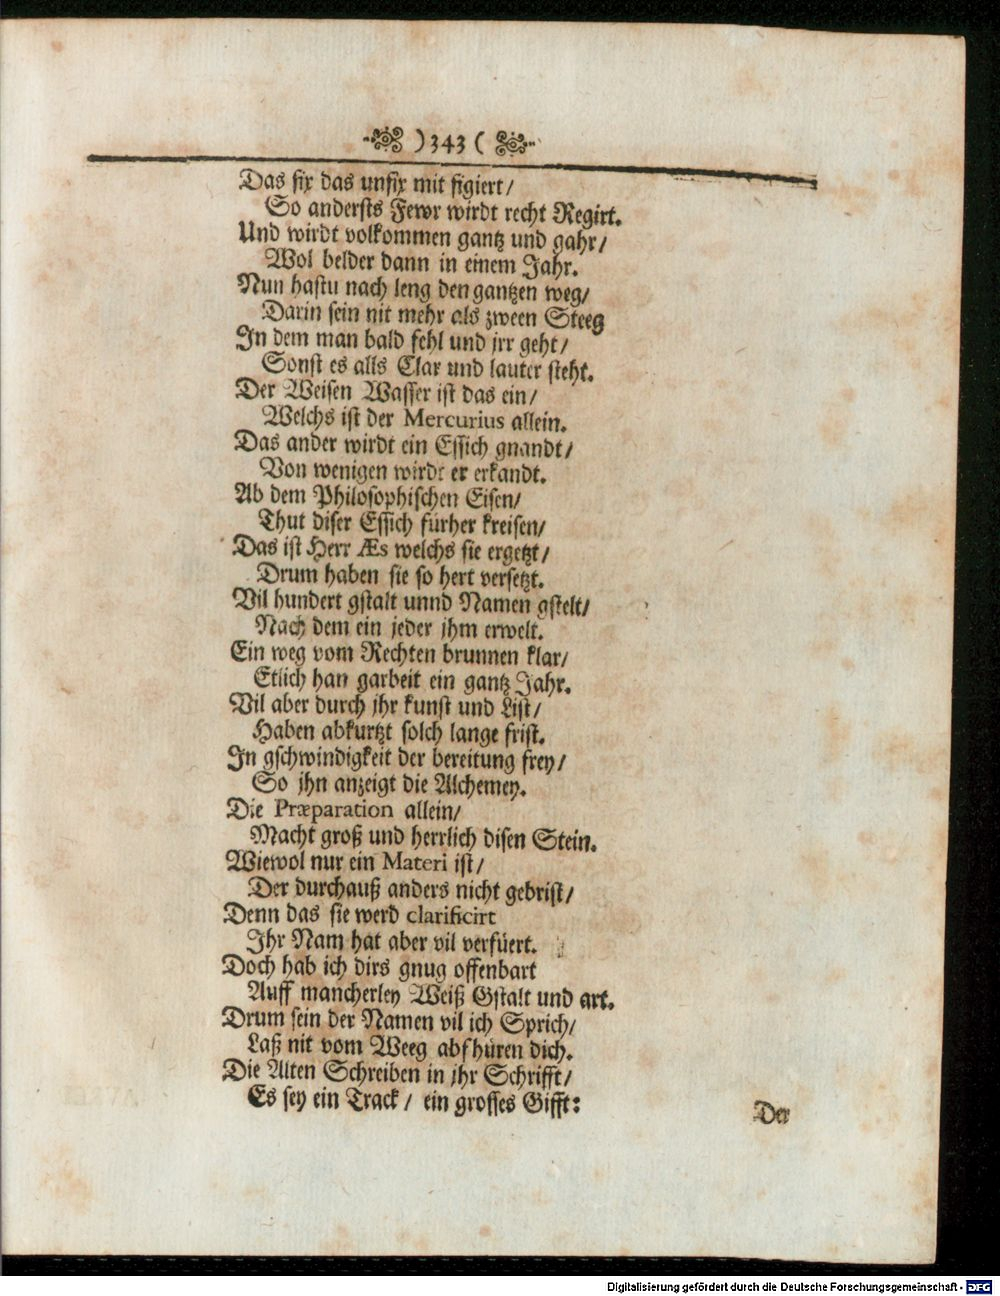 )343(
Das fix das unfix mit figiert/
So andersts Fewr wirdt recht Regirt.
Und wirdt volkommen gantz und gahr/
Wol belder dann in einem Jahr.
Nun hastu nach leng den gantzen weg/
Darin sein nit mehr als zween Steeg
In dem man bald fehl und jrr geht/
Sonst es alls Clar und lauter steht.
Der Weisen Wasser ist das ein/
Welchs ist der Mercurius allein.
Das ander wirdt ein Essich gnandt/
Von wenigen wirdt er erkandt.
Ab dem Philosophischen Eisen/
Thut diser Essich fürher kreisen/
Das ist Herr Æs welchs sie ergetzt/
Drum haben sie so hert versetzt.
Vil hundert gstalt unnd Namen gstelt/
Nach dem ein jeder jhm erwelt.
Ein weg vom Rechten brunnen klar/
Etlich han garbeit ein gantz Jahr.
Vil aber durch jhr kunst und List/
Haben abkurtzt solch lange frist.
In gschwindigkeit der bereitung frey/
So jhn anzeigt die Alchemey.
Die Præparation allein/
Macht groß und herrlich disen Stein.
Wiewol nur ein Materi ist/
Der durchauß anders nicht gebrist/
Denn das sie werd clarificirt
Ihr Nam hat aber vil verfüert.
Doch hab ich dirs gnug offenbart
Auff mancherley Weiß Gstalt und art.
Drum sein der Namen vil ich Sprich/
Laß nit vom Weeg abfhüren dich.
Die Alten Schreiben in jhr Schrifft/
Es sey ein Track/ ein grosses Gifft:
Der
Digitalisierung gefördert durch die Deutsche Forschungsgemeinschaft - DFG